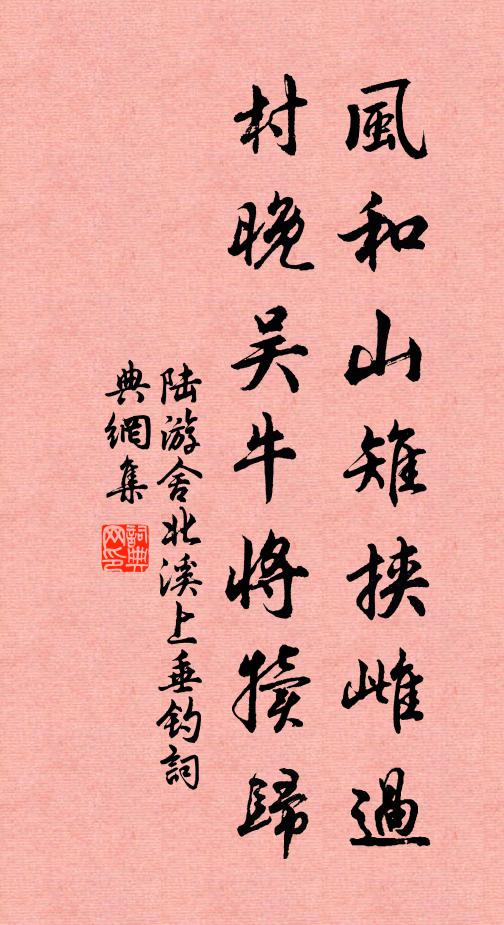 風和山雉挾雌過
村晚吴牛將犢歸
陆游舍北溪上垂钓詞
典網集
詞典
网印